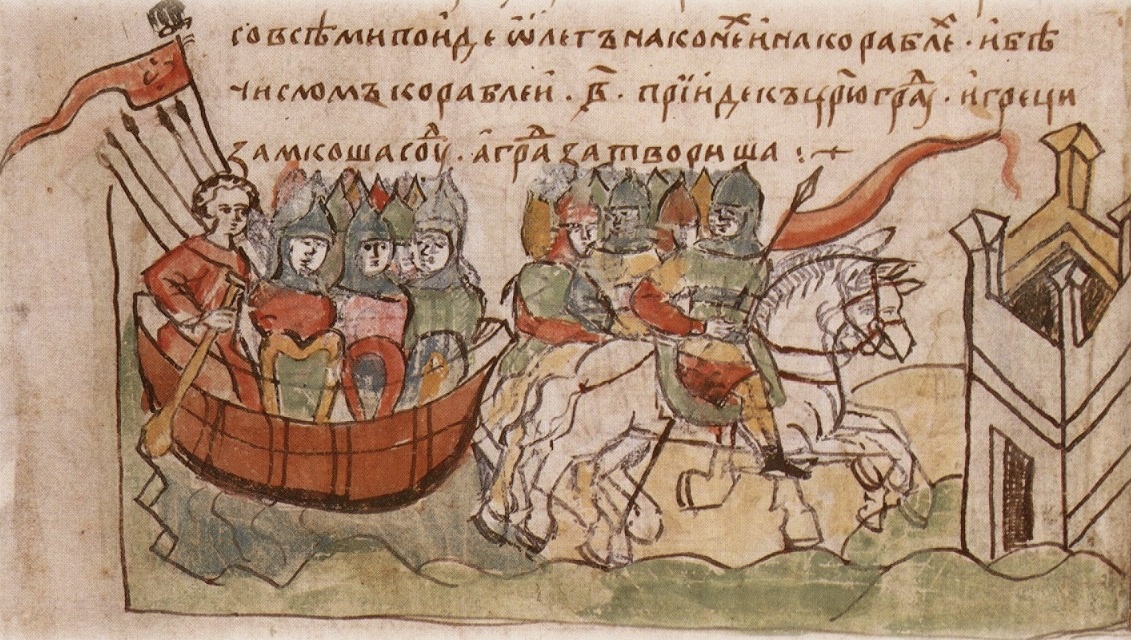 со всѣми поиде ѡлегъ на конеⷯ и на кораблеⷯ · и бѣ
числомъ кораблей · в҃ · прїиде къ цр҃ю граⷣ · и греци
замкоша соуⷣ · а граⷣ затвориша :~